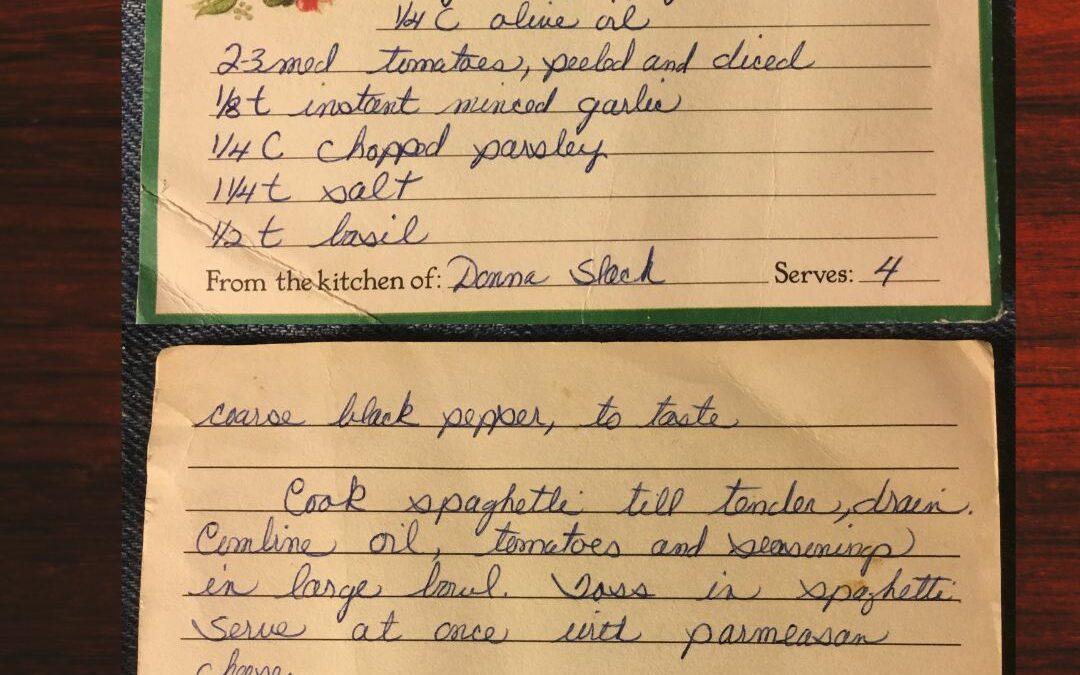 1/4 C olive oil
2-3 med tomatoes, peeled and diced
1/8 t instant minced garlic
1/4 C chopped parsley
1 1/4 t salt
1/2 t basil
From the kitchen of: Donna Slack Serves: 4
coarse black pepper, to taste
Cook spaghetti till tender, drain.
Combine oil, tomatoes and seasonings
in large bowl. Toss in spaghetti
Serve at once with parmeasan
cheese